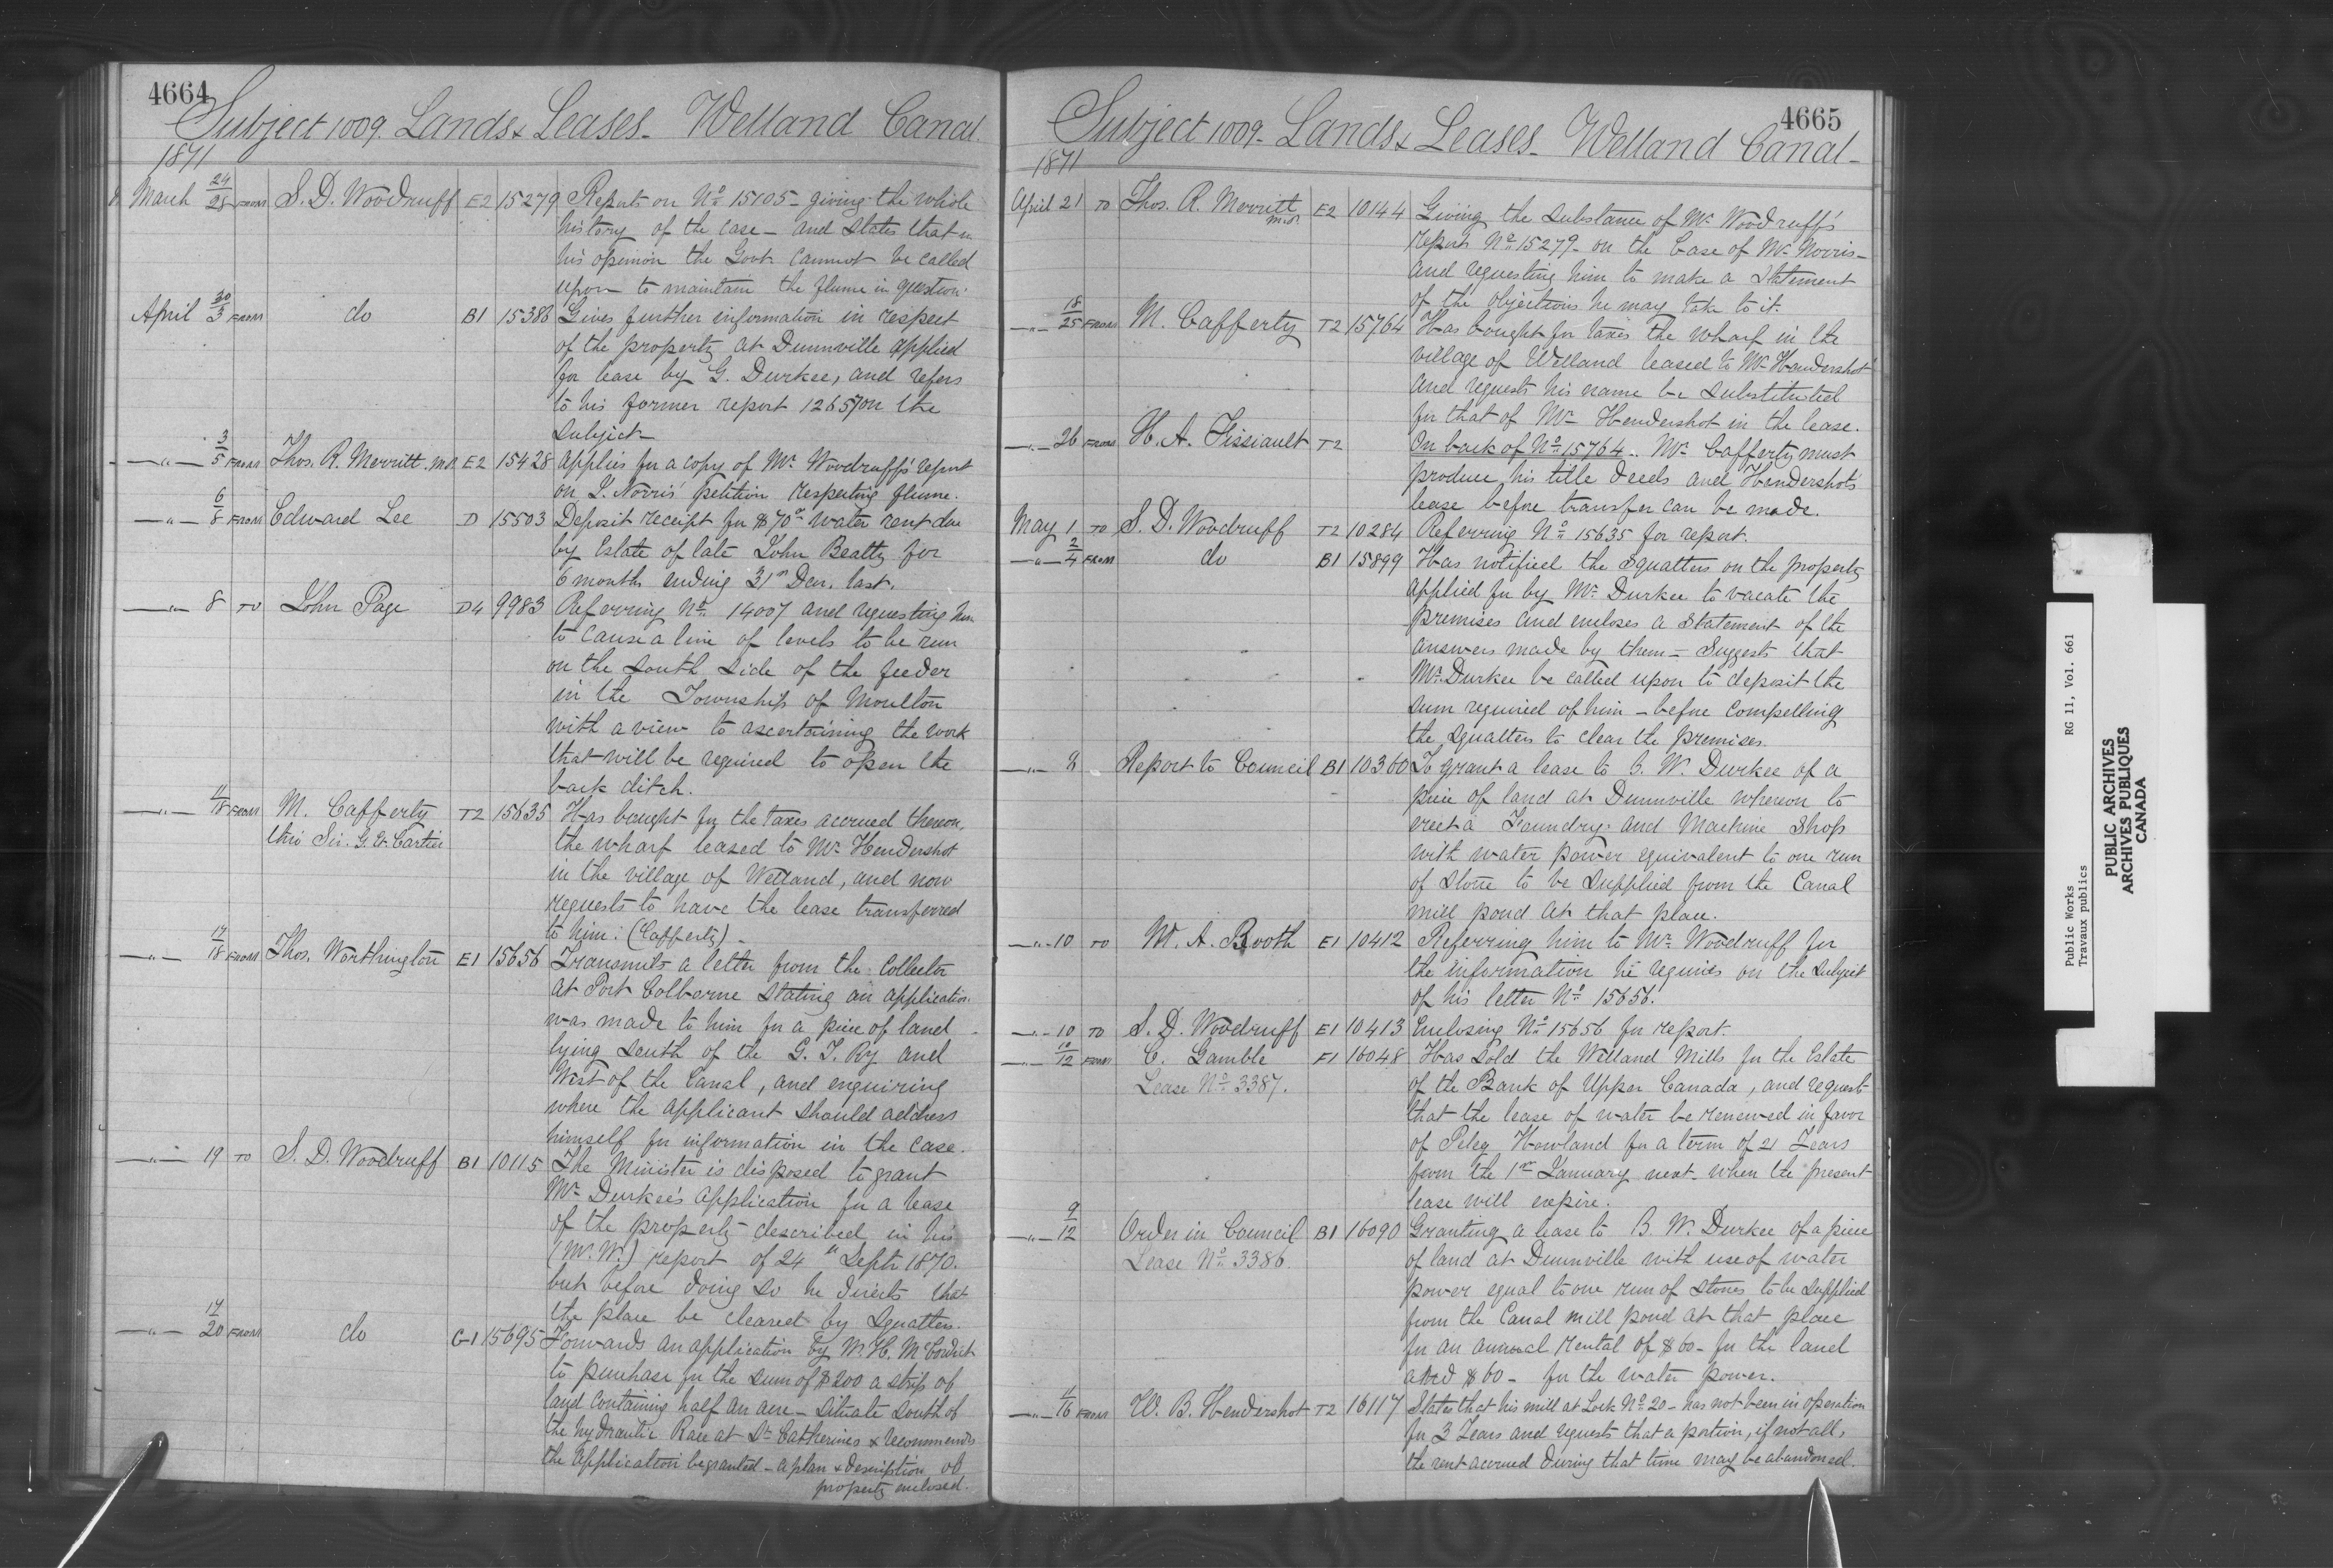 4664
Subject 1009. Lands & Leases - Welland Canal.
1871
March 24/28 FROM S. D. Woodruff E2 15279 Reports on No 15105 - giving the whole
history of the case - and states that in
his opinion the Govt cannot be called
upon to maintain the flume in question.
April 30/3 FROM do B1 15386 Gives further information in respect
of the property at Dunnville applied
for lease by G. Durkee, and refers
to his former report 12657 on the
subject -
-"- 3/5 FROM Thos. R. Merritt, M.P. E2 15428 Applies for a copy of Mr. Woodruff's report
on J. Norris' petition respecting flume.
-"- 6/8 FROM Edward Lee D 15503 Deposit receipt for $70 water rent due
by Estate of late John Beatty for
6 months ending 31st Decr. last.
-"- 8 TO John Page D4 9983 Referring No 14007 and requesting him
to cause a line of levels to be run
on the South Side of the feeder
in the Township of Moulton
with a view to ascertaining the work
that will be required to open the
back ditch.
-"- 11/18 FROM M. Cafferty T2 15635 Has bought for the taxes accrued thereon,
thro' Sir. G. E. Cartier the wharf leased to Mr. Hendershot
in the village of Welland, and now
requests to have the lease transferred
to him. (Cafferty) -
-"- 17/18 FROM Thos. Worthington E1 15656 Transmits a letter from the Collector
at Port Colborne stating an application
was made to him for a piece of land
lying South of the G. T. Ry and
West of the Canal, and enquiring
where the applicant should address
himself for information in the case.
-"- 19 TO S. D. Woodruff B1 10115 The Minister is disposed to grant
Mr. Durkee's application for a lease
of the property described in his
(Mr. W.) report of 24th Septr 1870.
but before doing so he directs that
the place be cleared by Squatters.
-"- 17/20 FROM do G1 15695 Forwards an application by W. H. McCordick
to purchase for the sum of $200 a strip of
land containing half an acre - situate south of
the hydraulic Race at St. Catherines & recommends
the application be granted - a plan & description of
property enclosed.
4665
Subject 1009 - Lands & Leases - Welland Canal -
1871
April 21 TO Thos. R. Merritt M.P. E2 10144 Giving the substance of Mr. Woodruff's
report No 15279 - on the Case of Mr. Norris -
and requesting him to make a statement
of the objections he may take to it.
-"- 18/25 FROM M. Cafferty T2 15764 Has bought for taxes the wharf in the
village of Welland leased to Mr. Hendershot
and requests his name be substituted
for that of Mr. Hendershot in the lease.
-"- 26 FROM H. A. Fissiault T2 On back of No 15764. Mr. Cafferty must
produce his title deeds and Hendershot's
lease before transfer can be made.
May 1 TO S. D. Woodruff T2 10284 Referring No 15635 for report.
-"- 2/4 FROM do B1 15899 Has notified the Squatters on the property
applied for by Mr. Durkee to vacate the
premises and encloses a statement of the
answers made by them - Suggests that
Mr. Durkee be called upon to deposit the
sum required of him - before compelling
the squatters to clear the premises.
-"- 8 Report to Council B1 10360 To grant a lease to B. W. Durkee of a
piece of land at Dunnville whereon to
erect a Foundry and Machine Shop
with water power equivalent to one run
of stone to be supplied from the Canal
mill pond at that place.
-"- 10 TO W. A. Booth E1 10412 Referring him to Mr. Woodruff for
the information he requires on the subject
of his letter No 15656.
-"- 10 TO S. D. Woodruff E1 10413 Enclosing No 15656 for report.
-"- 10/12 FROM C. Gamble F1 16048 Has sold the Welland Mills for the Estate
Lease No 3387. of the Bank of Upper Canada, and request
that the lease of water be renewed in favor
of Peleg Howland for a term of 21 Years
from the 1st January next - when the present
lease will expire.
-"- 9/12 Order in Council B1 16090 Granting a lease to B. W. Durkee of a piece
Lease No 3386. of land at Dunnville with use of water
power equal to one run of stones to be supplied
from the Canal mill pond at that place
for an annual rental of $60 - for the land
and $60 - for the water power.
-"- 11/16 FROM W. B. Hendershot T2 16117 States that his mill at Lock No 20 - has not been in operation
for 3 Years and requests that a portion, if not all,
the rent accrued during that time may be abandoned.
Public Works RG 11, Vol. 661
Travaux publics
PUBLIC ARCHIVES
ARCHIVES PUBLIQUES
CANADA